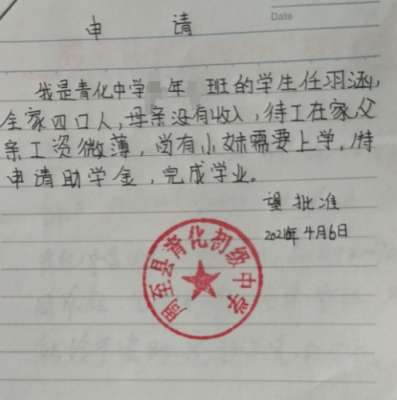 Date
申 请
我是青化中学 年 班的学生任羽涵,
全家四口人,母亲没有收入,待工在家父
亲工资微薄,尚有小妹需要上学,特
申请助学金,完成学业。
望批准
2021年4月6日
周至县青化初级中学